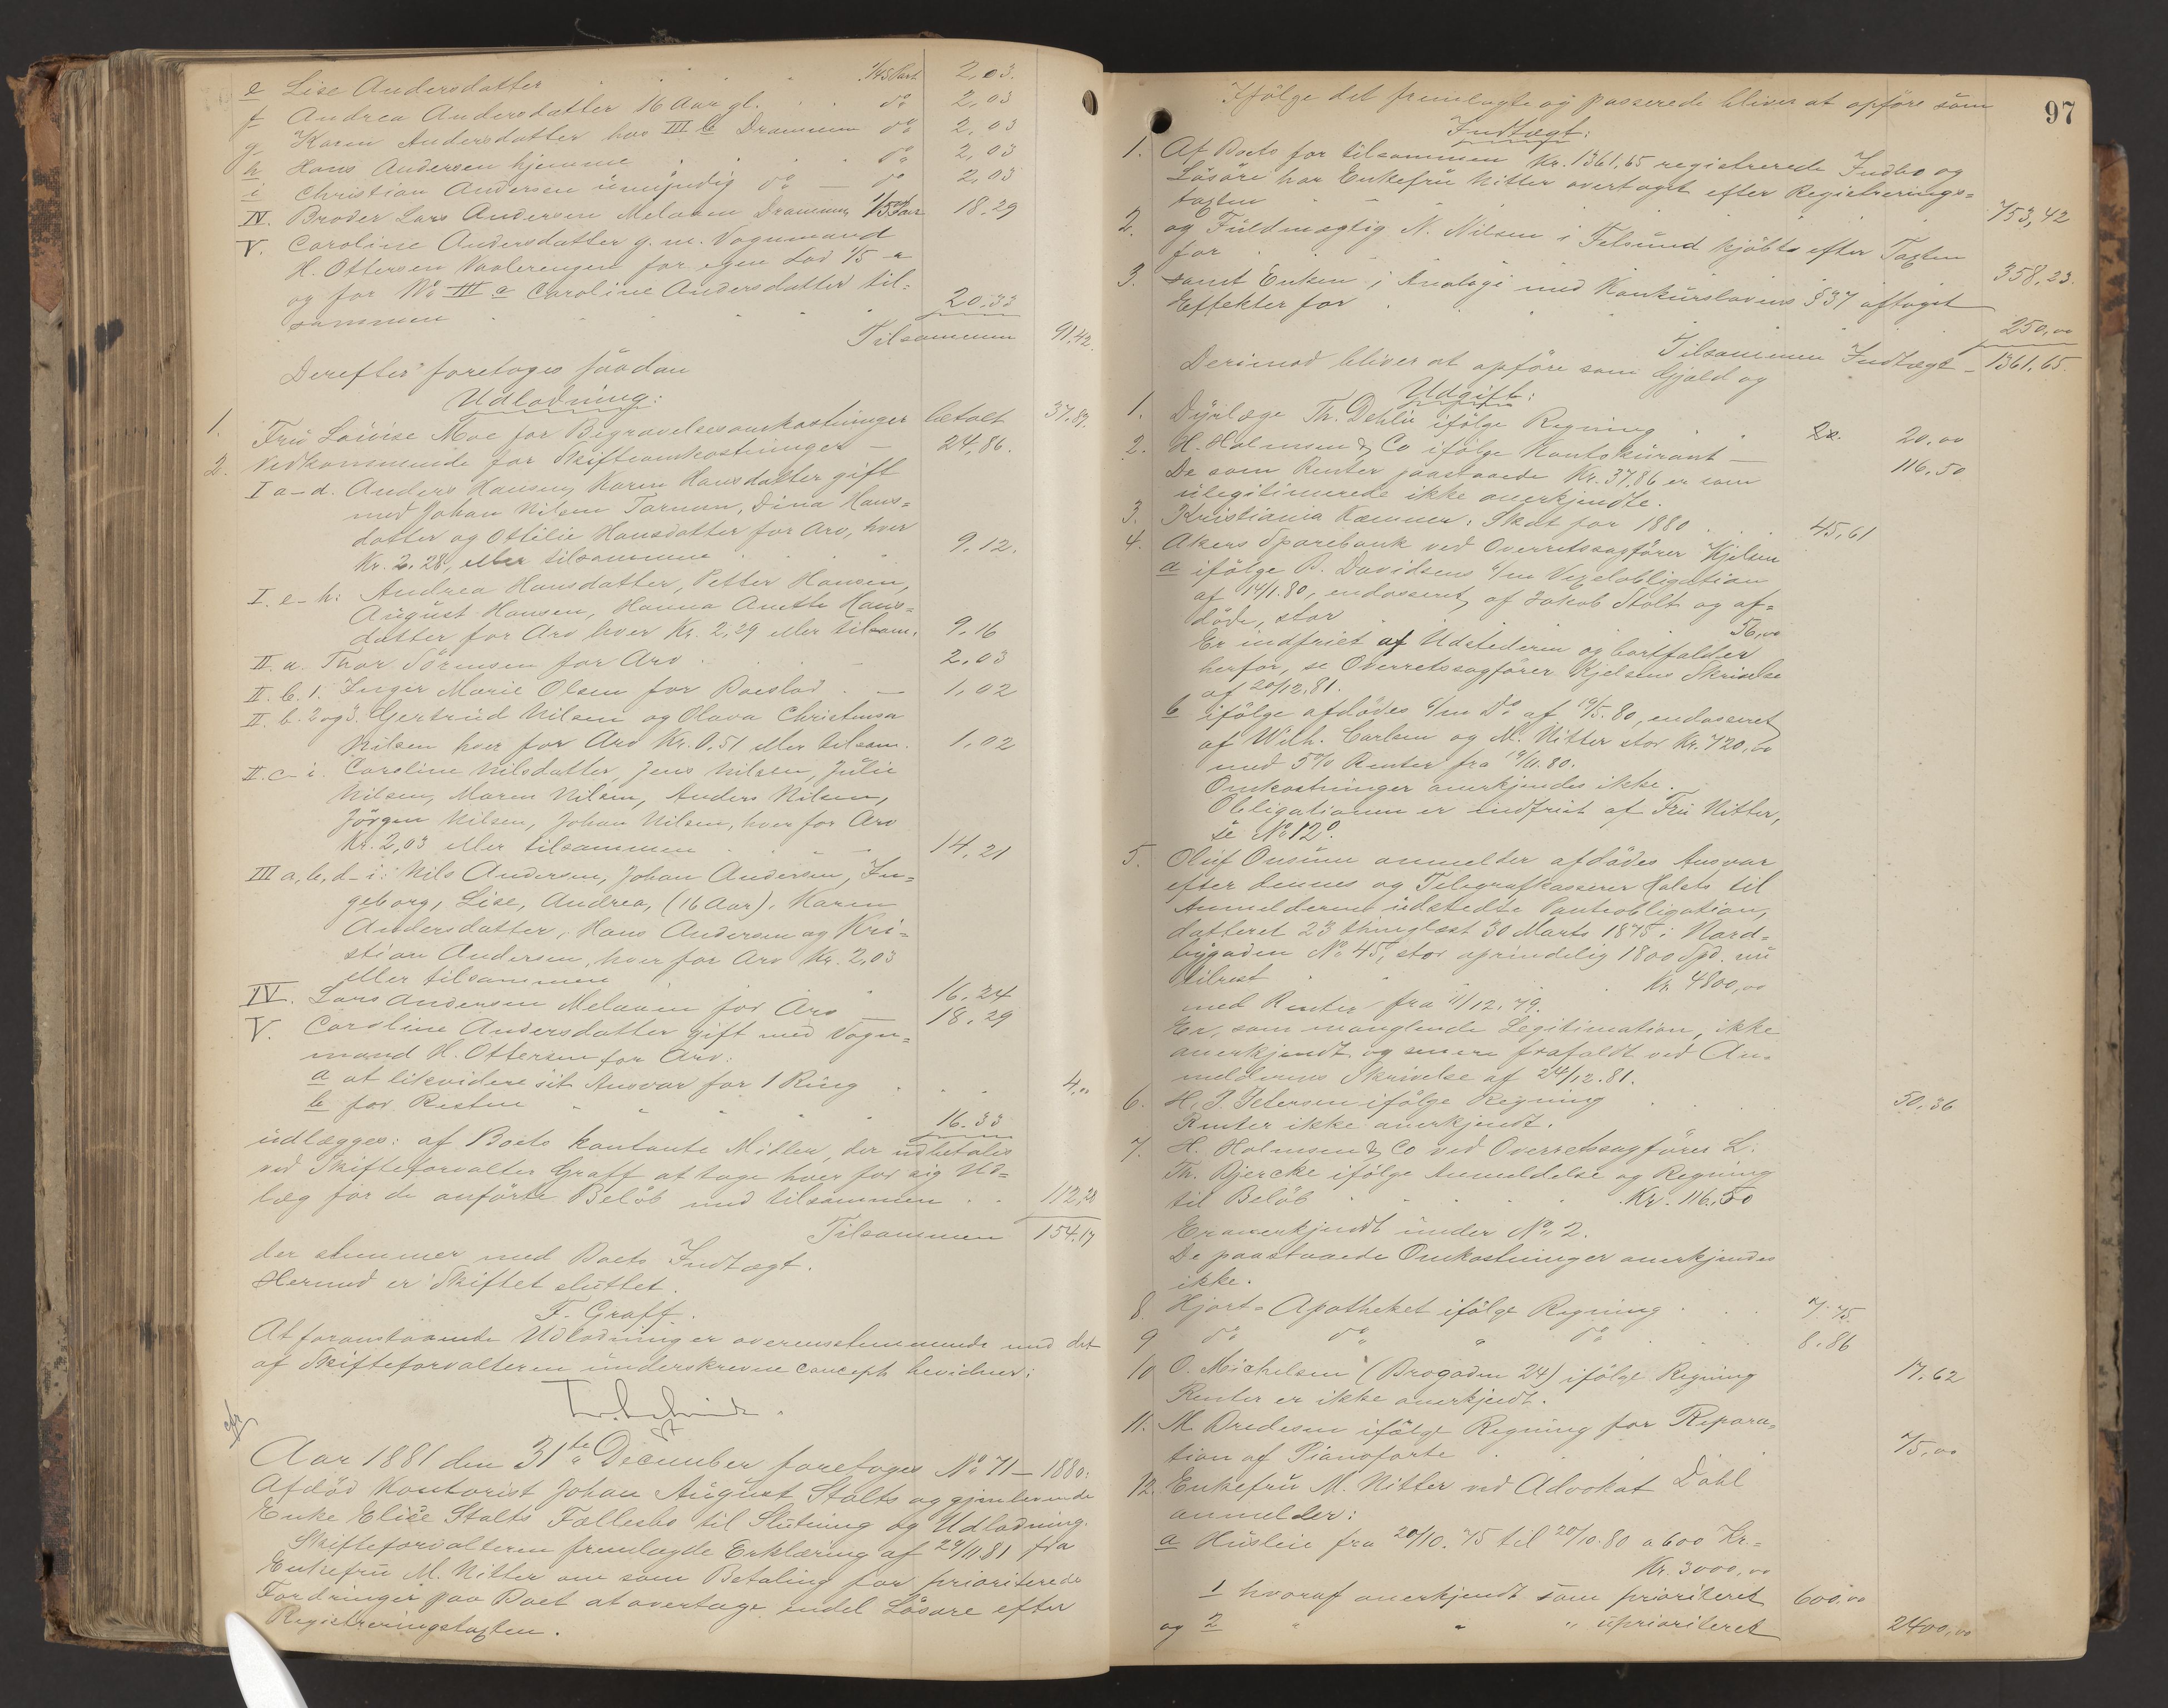 e Lise Andersdatter . . . 1/45 Part 2,03.
f Andrea Andersdatter 16 Aar gl. . . do 2,03
g Karen Andersdatter hos III b Drammen do 2,03
h Hans Andersen hjemme . . . . do 2,03
i Christian Andersen umyndig do — do 2,03
IV. Broder Lars Andersen Melaaen Drammen 1/5 Part 18,29
V. Caroline Andersdatter g. m. Vognmand
H. Ottersen Vaalerengen for egen Lod 1/5
og for No III c Caroline Andersdatter til-
sammen 20.33
Tilsammen 91,42.
Derefter foretoges saadan
Udlodning:
1. Fru Lovise Moe for Begravelsesomkostninger betalt 37,87.
2. Vedkommende for Skifteomkostninger — 24,86.
I a–d. Anders Hansen, Karen Hansdatter gift
med Johan Nilsen Tornum, Dina Hans-
datter og Ottilie Hansdatter for Arv, hver
Kr. 2,28, eller tilsammen 9,12.
I. e–h: Andrea Hansdatter, Petter Hansen,
August Hansen, Hanna Anette Hans-
datter for Arv hver Kr. 2,29 eller tilsam. 9,16
II. a. Thor Sørensen for Arv . . . — 2,03
II. b. 1. Inger Marie Olsen for Boeslod . — 1,02
II. b. 2 og 3. Gertrud Nilsen og Olava Christensa
Nilsen hver for Arv Kr. 0,51 eller tilsam. 1,02
II. c–i. Caroline Nilsdatter, Jens Nilsen, Julie
Nilsen, Maren Nilsen, Anders Nilsen,
Jørgen Nilsen, Johan Nilsen, hver for Arv
Kr. 2,03 eller tilsammen 14,21
III a, b, d–i: Nils Andersen, Johan Andersen, In-
geborg, Lise, Andrea, (16 Aar), Karen
Andersdatter, Hans Andersen og Kri-
stian Andersen, hver for Arv Kr. 2,03
eller tilsammen 16,24
IV. Lars Andersen Melaaen for Arv — 18,29
V. Caroline Andersdatter gift med Vogn-
mand H. Ottersen for Arv:
a at likvidere sit Ansvar for 1 Ring . . . 4,00
b for Resten 16.33
udlægges: af Boets kontante Midler, der udbetales
ved Skifteforvalter Graff at tage hver for sig Ud-
læg for de anførte Beløb med tilsammen . . 112,28
Tilsammen 154.17
der stemmer med Boets Indtægt.
Hermed er Skiftet sluttet.
F. Graff.
At foranstaaende Udlodning er overensstemmende med det
af Skifteforvalteren underskrevne Concept bevidner:
Aar 1881 den 31te December foretoges No 71 – 1880:
Afdød Kontorist Johan August Stolts og gjenlevende
Enke Elise Stolts Fællesbo til Slutning og Udlodning.
Skifteforvalteren fremlagde Erklæring af 29/11 81 fra
Enkefru M. Nitter om som Betaling for prioriterede
Fordringer paa Boet at overtage endel Løsøre efter
Registreringstaxten.
97
Ifølge det fremlagte og passerede bliver at opføre som
Indtægt:
1. Af Boets for tilsammen Kr. 1361,65 registrerede Indbo og
Løsøre har Enkefru Nitter overtaget efter Registrerings-
taxten 753,42
2. og Fuldmægtig N. Nilsen i Felsund kjøbte efter Taxten
for . . . 358,23.
3. samt Enken i Analogi med Konkurslovens § 37 aftaget
Effekter for . . . 250,00
Tilsammen Indtægt – 1361,65.
Derimod bliver at opføre som Gjæld og
Udgift:
1. Dyrlæge Th. Dehli ifølge Regning . . 20. 20,00
2. H. Holmsen & Co ifølge Kontokurant — 116,50
De som Renter paastaaede Kr. 37,86 er som
ulegitimerede ikke anerkjendte.
3. Kristiania Kæmner: Skat for 1880 . . 45,61
4. Akers Sparebank ved Overretssagfører Kjelsen
a ifølge B. Davidsens 6/m Vexelobligation
af 14/1. 80, endosseret af Jakob Stolt og af-
døde, stor 56,00
Er indfriet af Udstederen og bortfalder
herfor, se Overretssagfører Kjelsens Skrivelse
af 20/12. 81.
b ifølge afdødes 6/m Do af 19/5. 80, endosseret
af Wilh. Carlsen og M. Nitter stor Kr. 720,00
med 5 % Renter fra 19/11. 80.
Omkostninger anerkjendes ikke.
Obligationen er indfriet af Fru Nitter,
se No 12.
5. Oluf Onsum anmelder afdødes Ansvar
efter dennes og Telegrafkasserer Holsts til
Anmelderen udstedte Panteobligation,
datteret 23 thinglæst 30 Marts 1875 i Nord-
bygaden No 45, stor oprindelig 1800 Spd. nu
tilrest . . Kr. 4800,00
med Renter fra 11/12. 79.
Er, som manglende Legitimation, ikke
anerkjendt og senere frafaldt ved An-
melderens Skrivelse af 24/12. 81.
6. H. P. Petersen ifølge Regning . . 50,36
Renter ikke anerkjendt.
7. H. Holmsen & Co ved Overretssagfører L.
Th. Bjercke ifølge Anmeldelse og Regning
til Beløb . . . Kr. 116,50
Er anerkjendt under No 2.
De paastaaede Omkostninger anerkjendes
ikke.
8. Hjort-Apotheket ifølge Regning . . . 7,75
9 do do " do 8,86
10 O. Michelsen (Brogaden 24) ifølge Regning 17,62
Renter er ikke anerkjendt.
11. M. Bredesen ifølge Regning for Repara-
tion af Pianoforte . . . 75,00
12. Enkefru M. Nitter ved Advokat Dahl
anmelder:
a Husleie fra 20/10. 75 til 20/10. 80 a 600 Kr =
Kr. 3000,00
1 hvoraf anerkjendt som prioriteret 600,00
og 2 " " " uprioriteret 2400,00